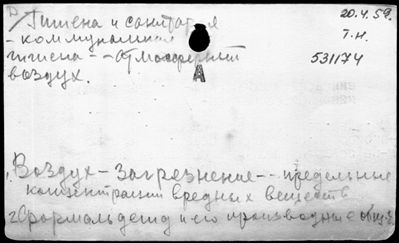 Гигиена и санитария
20.4.59.
- коммунальная
Т.Н.
гигиена -- атмосферный
531174
воздух.
А
1. Воздух - Загрязнение -- предельные
концентрации вредных веществ
2. Формальдегид и его производные